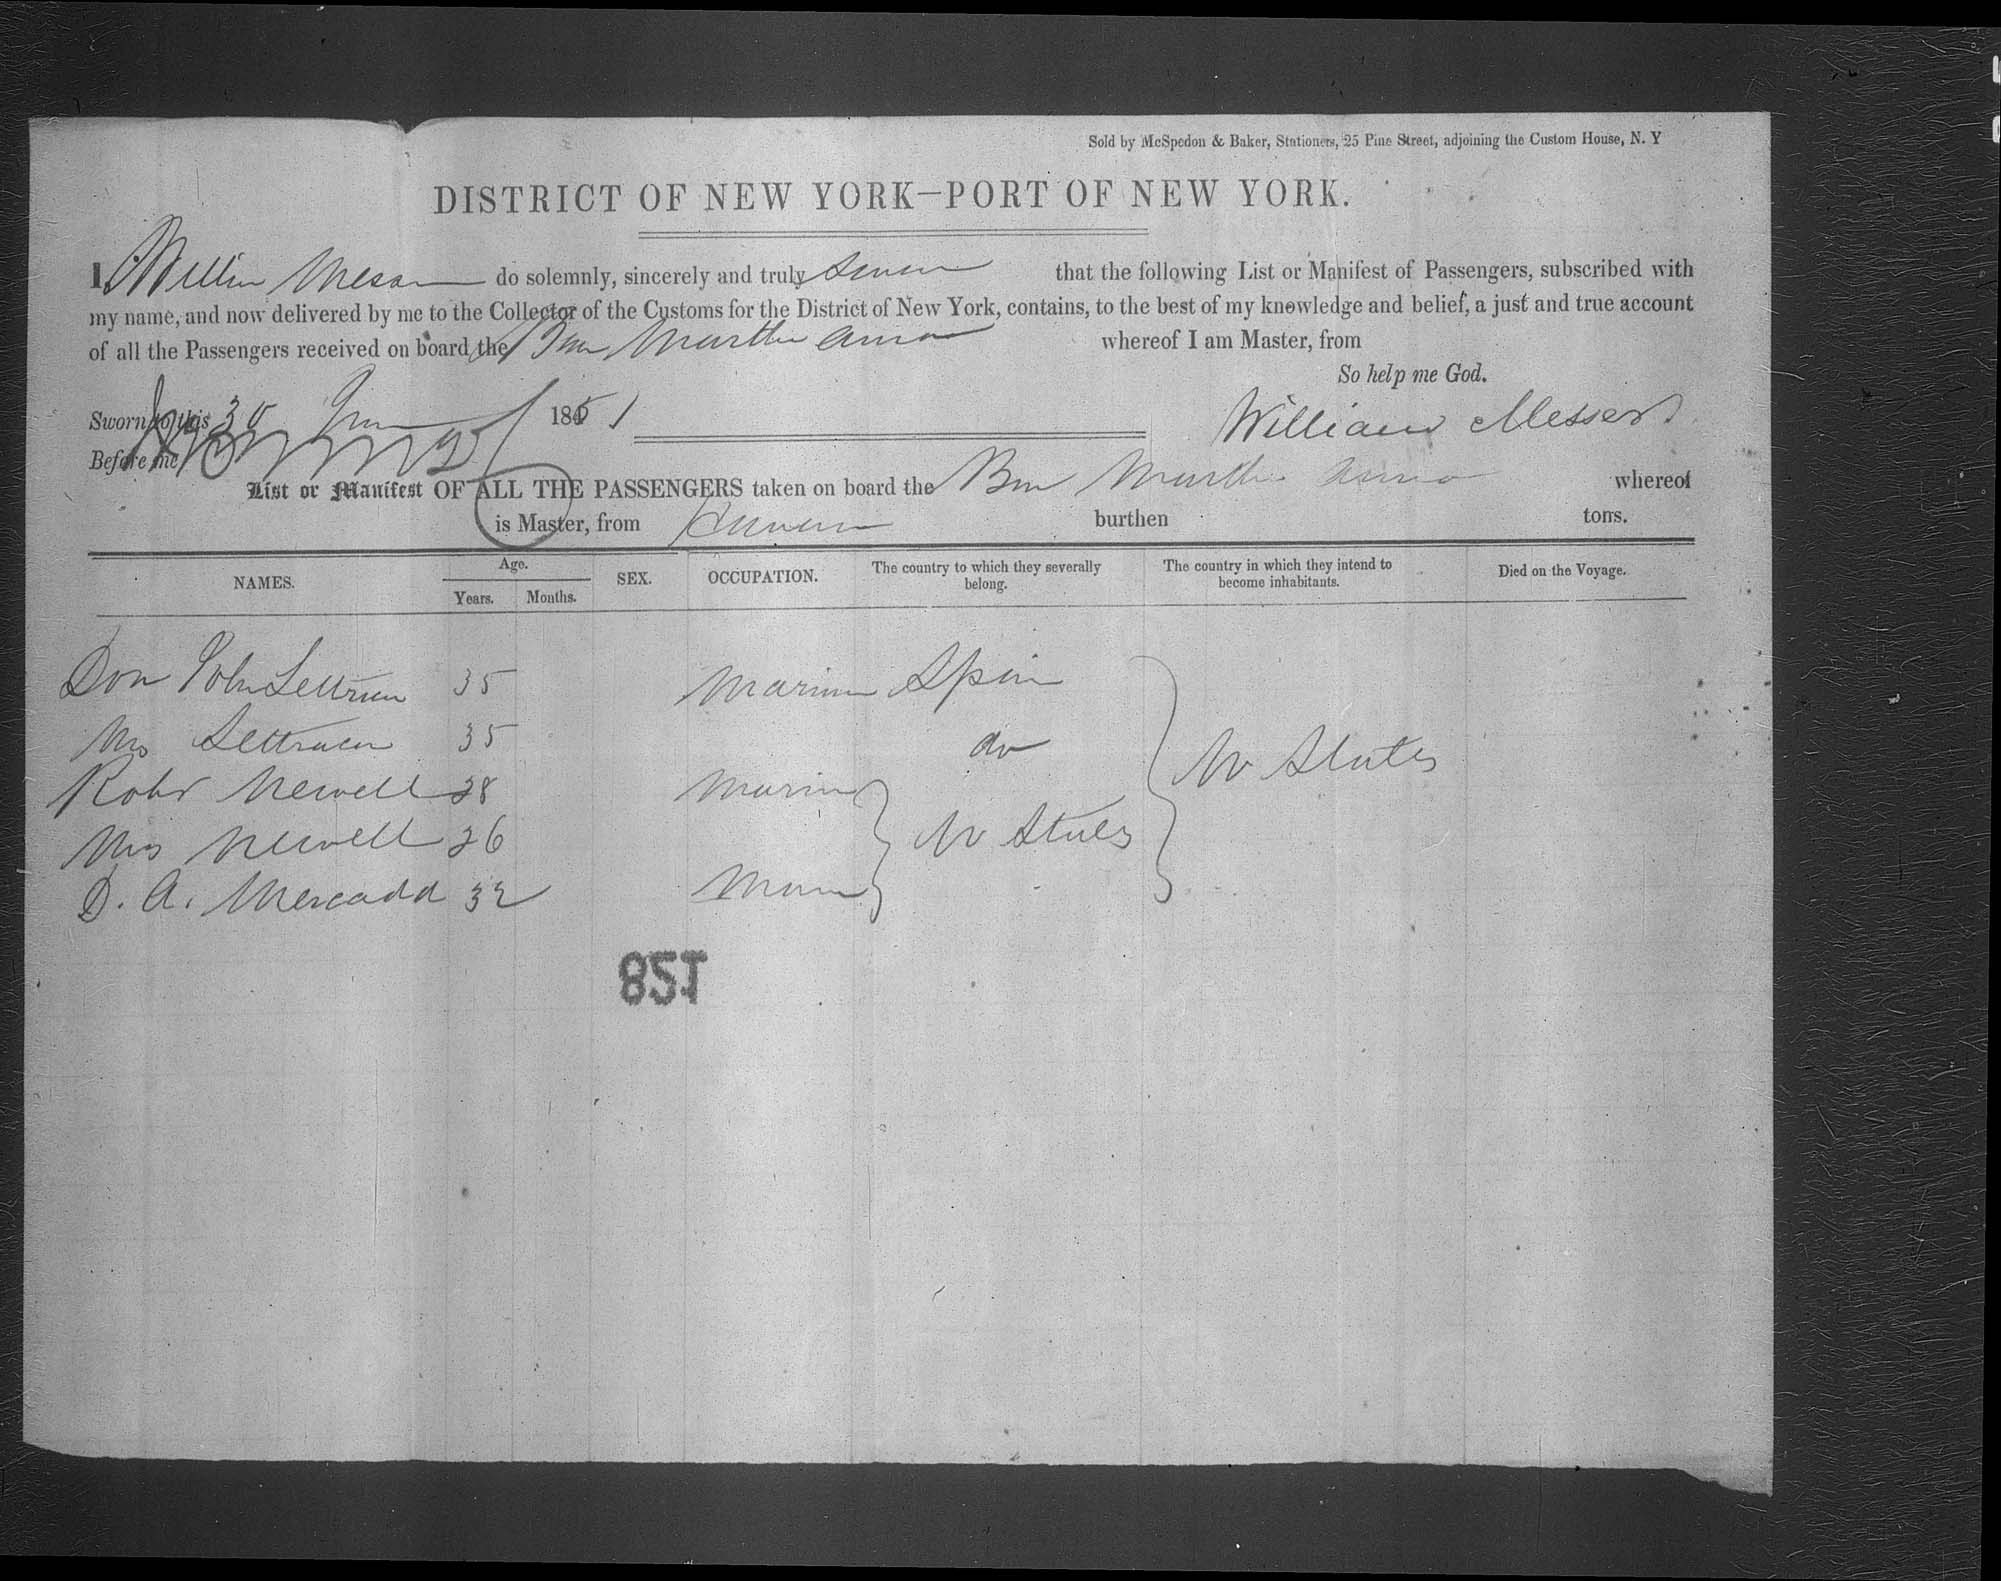 Sold by McSpedon & Baker, Stationers, 25 Pine Street, adjoining the Custom House, N. Y
DISTRICT OF NEW YORK—PORT OF NEW YORK.
I, do solemnly, sincerely and truly that the following List or Manifest of Passengers, subscribed with
my name, and now delivered by me to the Collector of the Customs for the District of New York, contains, to the best of my knowledge and belief, a just and true account
of all the Passengers received on board the Martha Anna whereof I am Master, from
So help me God.
Sworn to this 30 1851 William Messer
Before me
List or Manifest OF ALL THE PASSENGERS taken on board the Martha Anna whereof
is Master, from burthen tons.
NAMES. Age. Years. Months. SEX. OCCUPATION. The country to which they severally belong. The country in which they intend to become inhabitants. Died on the Voyage.
Don John 35 Spain
Mrs 35 do
Robt Newell 28 U States
Mrs Newell 26 U States
D. A. Mercadd 32
128